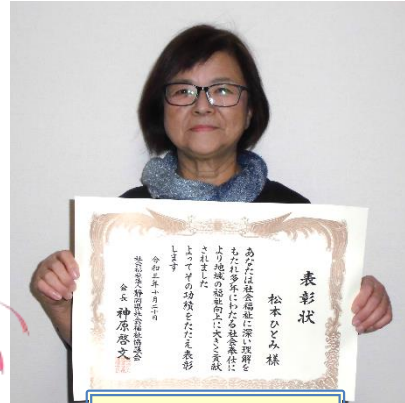 表彰状
松本ひとみ 様
あなたは社会福祉に深い理解を
もたれ多年にわたる社会奉仕に
より地域の福祉向上に大きく貢献
されました
よってその功績をたたえ表彰
します
令和三年十月二十日
社会福祉法人静岡県社会福祉協議会
会長 神原啓文